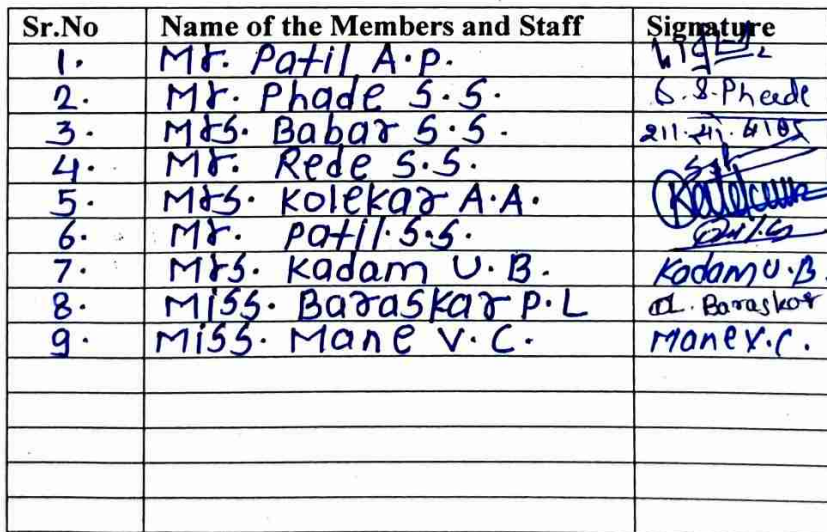 Sr.No Name of the Members and Staff Signature
1. Mr. Patil A.P.
2. Mr. Phade S.S. S.S. Phade
3. Mrs. Babar S.S.
4. Mr. Rede S.S.
5. Mrs. Kolekar A.A.
6. Mr. Patil.S.S.
7. Mrs. Kadam U.B. Kadam U.B.
8. Miss. Baraskar P.L Baraskar
9. Miss. Mane V.C. Mane V.C.